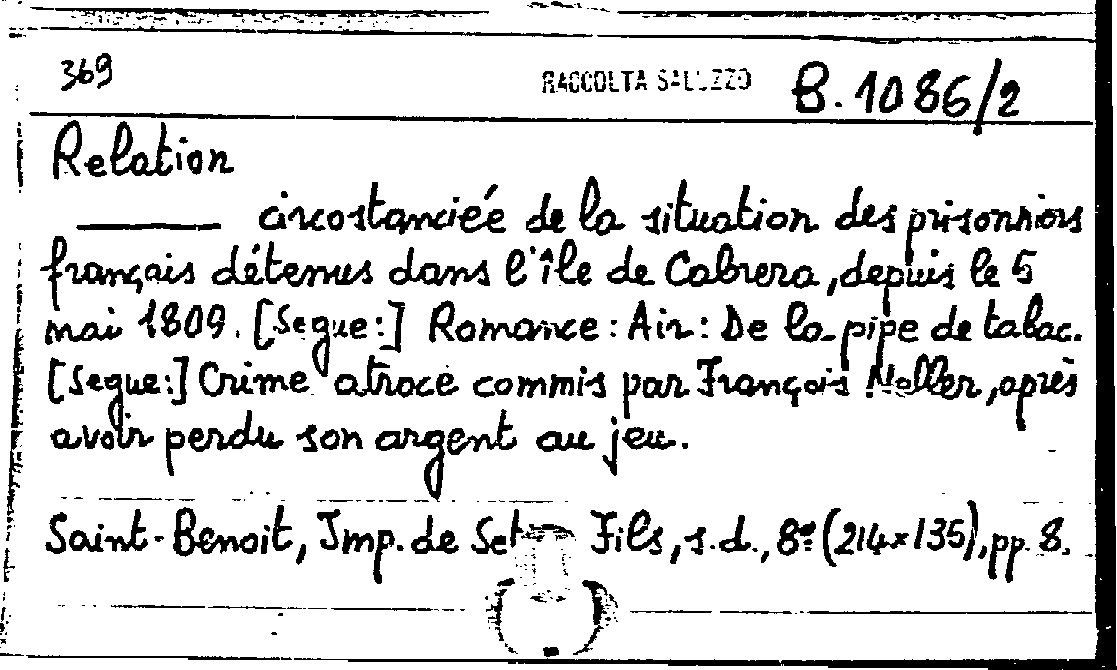 369 RACCOLTA SALUZZO B. 1086/2
Relation
circostanciée de la situation des prisonniers
français détenus dans l'île de Cabrera, depuis le 5
mai 1809. [Segue:] Romance: Air: De la pipe de tabac.
[Segue:] Crime atroce commis par François, après
avoir perdu son argent au jeu.
Saint-Benoit, Imp. de Fils, s.d., 8º (214×135), pp. 8.